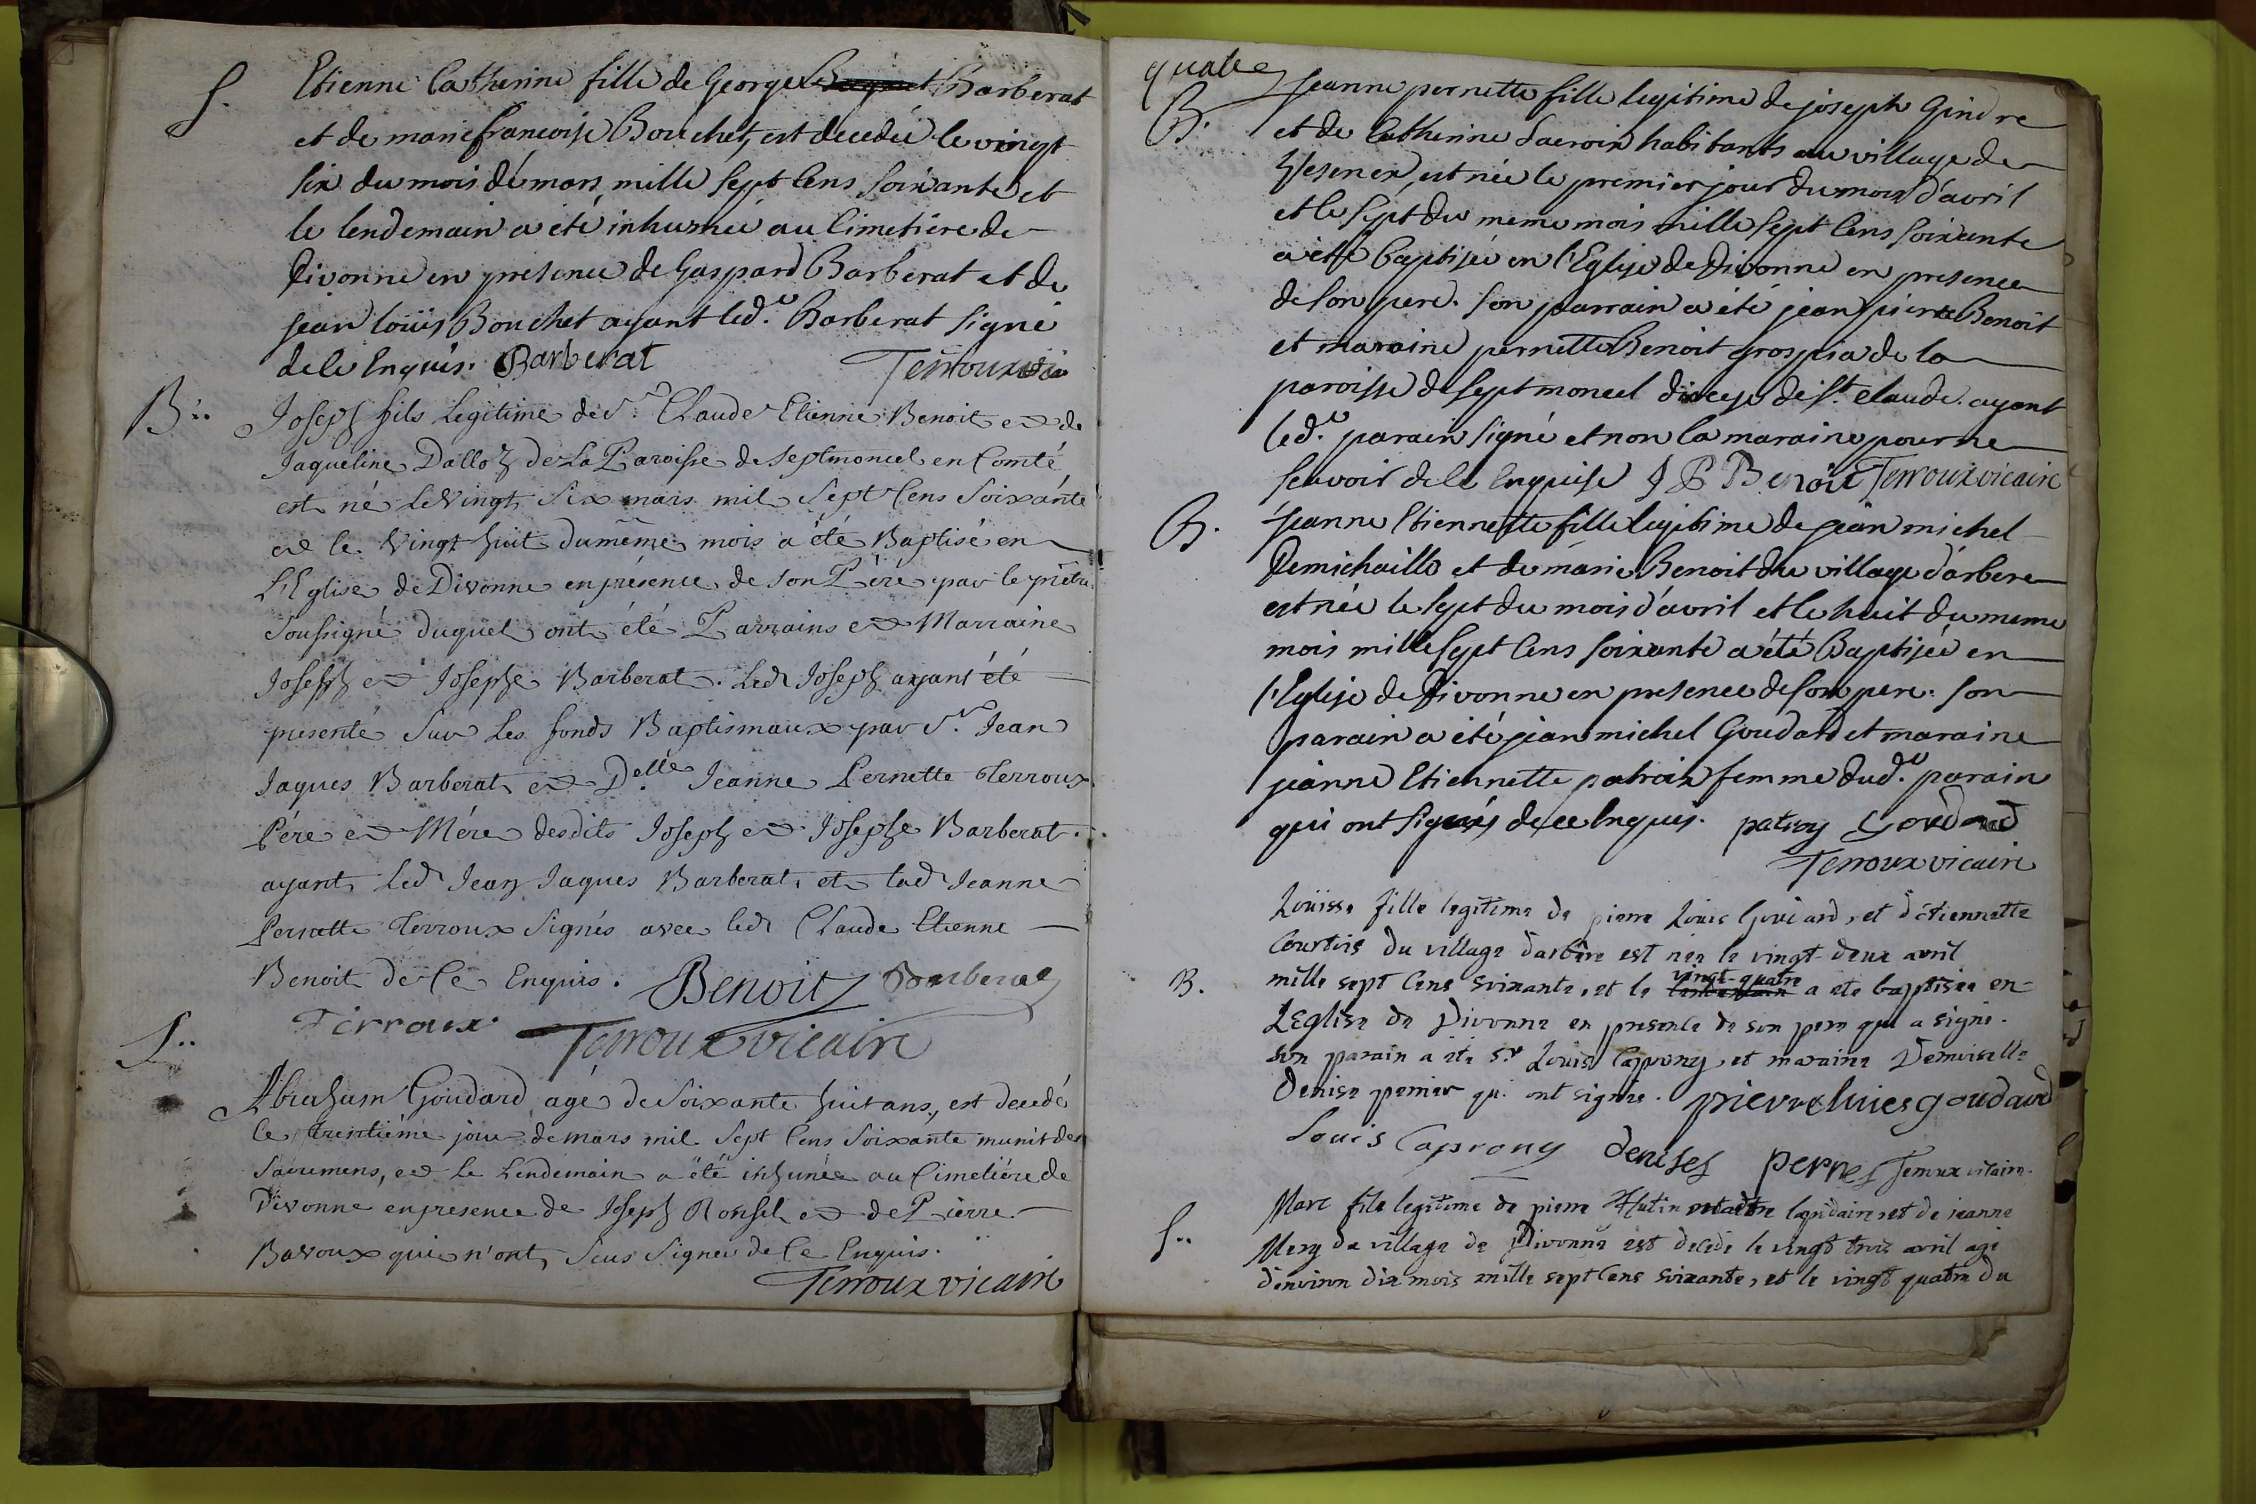 S.
Etienne Catherine fille de George Barberat
et de marie francoise Bouchet, est decedée le vingt
six du mois de mars mille sept cens soixante et
le lendemain a été inhumée au Cimetiere de
Divonne en presence de Gaspard Barberat et de
jean loüis Bouchet ayant led.t Barberat signé
de ce enquis. Barberat Terroux vic
B..
Joseph fils Legitime de Sr. Claude Etienne Benoit et de
Jaqueline Dalloz de La Paroisse de Septmoncel en Comté
est né le Vingt Six mars mil Sept Cens Soixante
et le Vingt huit du même mois a été Baptisé en
L'Eglise de Divonne en présence de Son Pére par le prêtre
Soussigné duquel ont été Parrains et Marraine
Joseph et Josephe Barberat. Led Joseph ayant été
presenté Sur Les fonds Baptismaux par Sr. Jean
Jaques Barberat et D.elle Jeanne Pernette Terroux
Pére et Mére desdits Joseph et Josephe Barberat.
ayant Led Jean Jaques Barberat et lad Jeanne
Pernette Terroux Signés avec led Claude Etienne
Benoit de Ce Enquis. Benoit Barberat
Terroux Terroux vicaire
S..
Abraham Goudard agé de Soixante huit ans, est decedé
le trentiéme jour de mars mil Sept Cens Soixante munit des
Sacremens, et Le Lendemain a été inhumée au Cimetiére de
Divonne en presence de Joseph Ronsel et de Pierre
Bavoux qui n'ont Seus Signer de Ce Enquis.
Terroux vicaire
quatre
B.
Jeanne pernette fille legitime de joseph Gindre
et de Catherine Lacroix habitants au village de
Vesenex, est née le premier jour du mois d'avril
et le sept du meme mois mille sept Cens soixante
a été baptisée en l'Eglise de Divonne en presence
de son pere. son parrain a été jean pierre Benoit
et maraine pernette Benoit grospira de la
paroisse de sept moncel diocese de St. claude. ayant
led.t parain signé et non la maraine pour ne
scavoir de ce enquise J P Benoit Terroux vicaire
B.
Jeanne Etiennette fille legitime de jean michel
Demichaille et de marie Benoit du village d'arbere
est née le sept du mois d'avril et le huit du meme
mois mille sept Cens soixante a été Baptisée en
l'Eglise de Divonne en presence de son pere. son
parain a été jean michel Goudard et maraine
jeanne Etiennette patroix femme dud.t parain
qui ont signés de ce enquis. patroy Goudard
Terroux vicaire
Loüisse fille legitime de pierre Louis Goudard, et d'étiennette
Courtois du village d'arbere est nee le vingt deux avril
B.
mille sept Cens soixante, et le lendemain vingt-quatre a ete baptisée en
L'Eglise de Divonne en presence de son pere qui a signé.
son parain a ete Sr Louis Caprony, et maraine Demoiselle
Denise pernier qui ont signée. pierre luies goudard
Louis Caprony denises perne Terroux vicaire.
S..
Marc fils legitime de pierre Hutin maitre lapidaire et de jeanne
Mery du village de Divonne est decede le vingt trois avril agé
d'environ dix mois mille sept Cens soixante, et le vingt quatre du